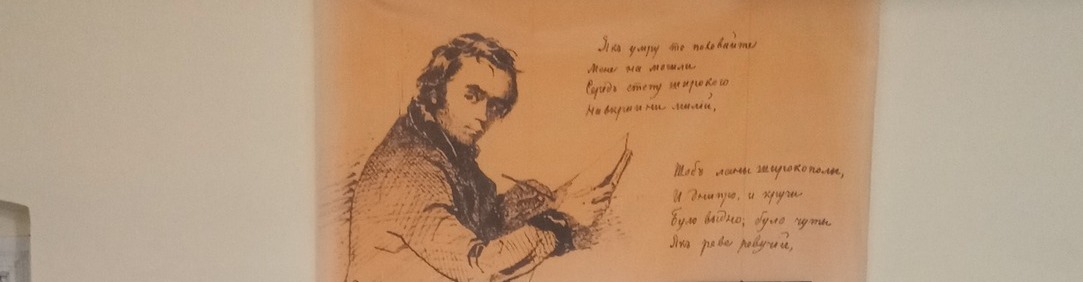 Якъ умру то поховайте
Мене на могили
Середъ степу широкого
На вкраини милій,
Щобъ ланы широкополы,
И Днипро, и кручи
Було выдно, було чути
Якъ реве ревучій,